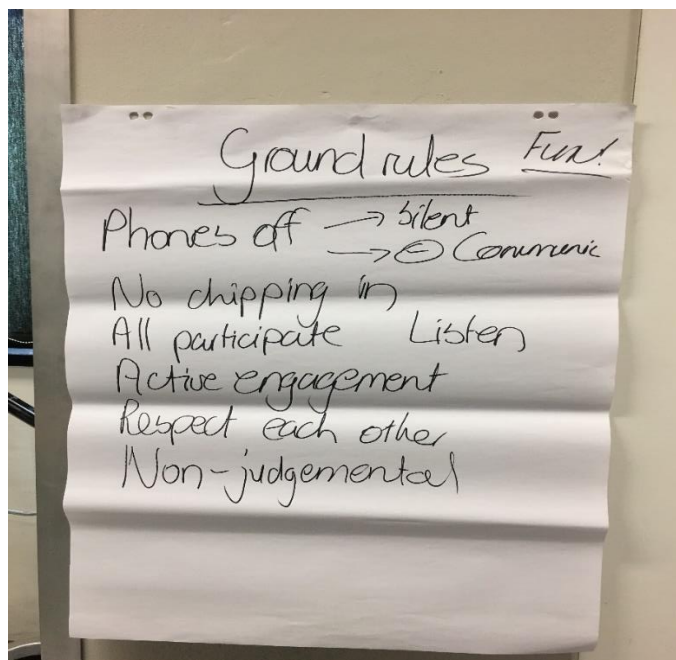 Ground rules Fun!
Phones off → Silent
→ ⊖ Communic
No chipping in
All participate Listen
Active engagement
Respect each other
Non-judgemental